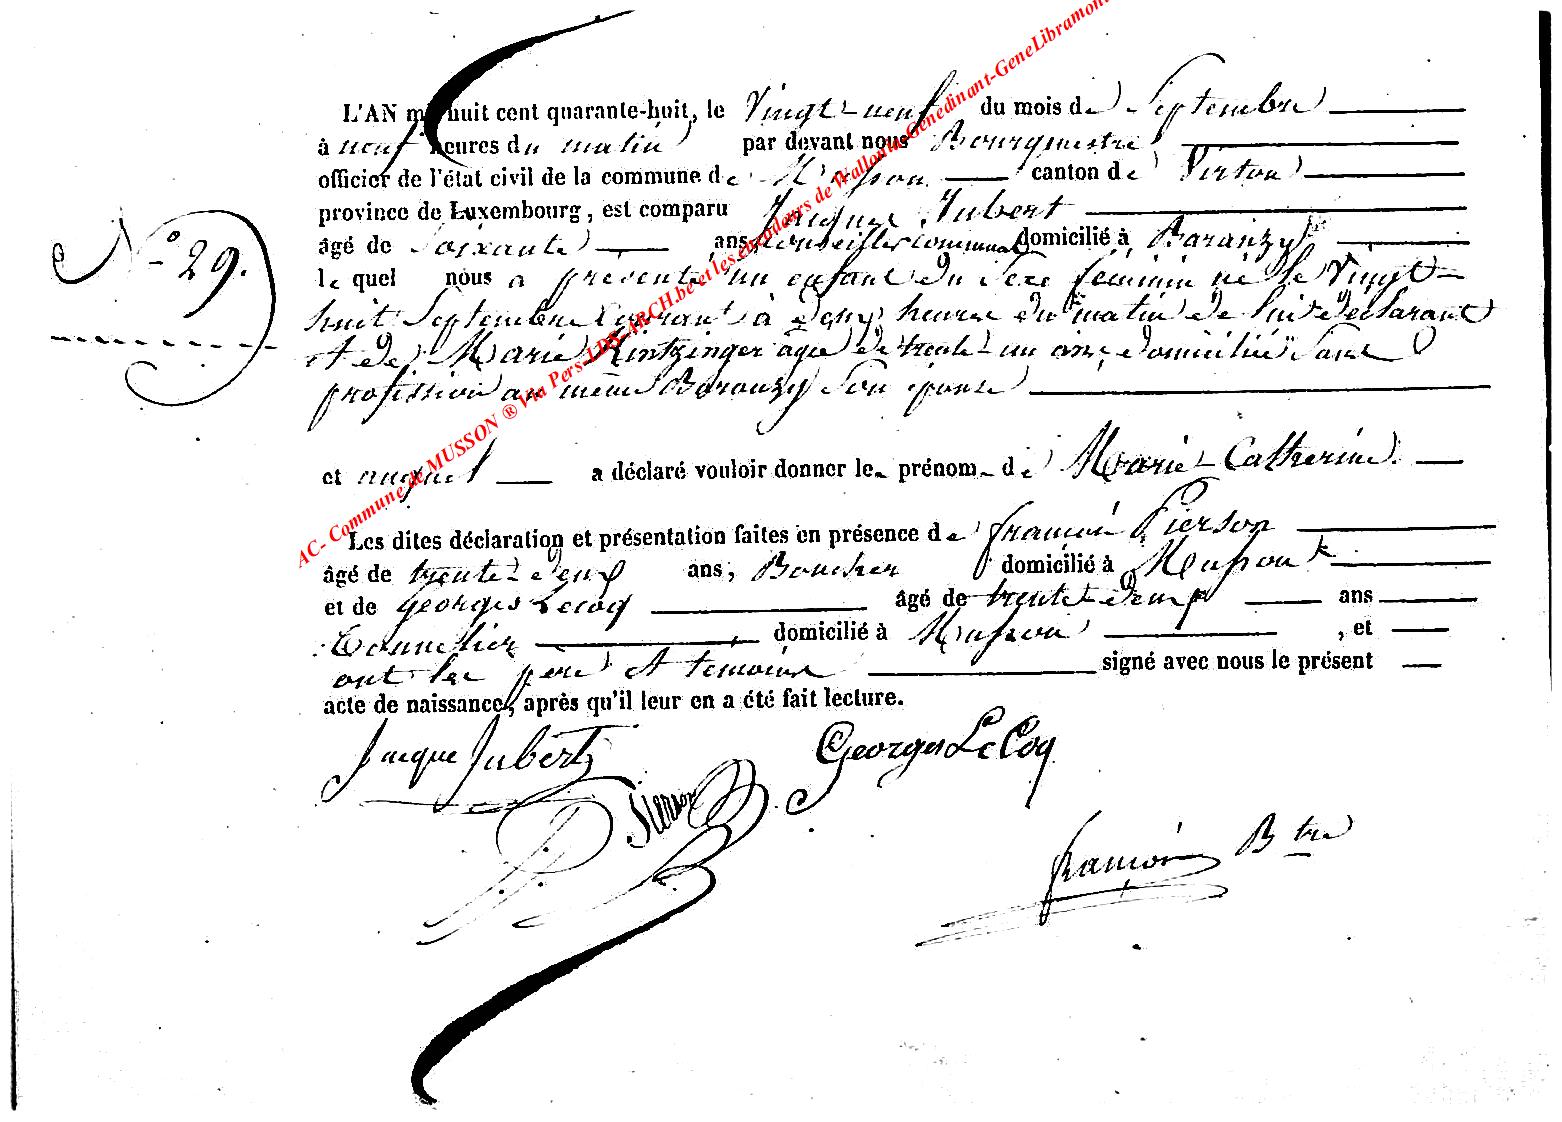 L'AN mil huit cent quarante-huit, le Vingt-neuf du mois de Septembre
à neuf heures du matin par devant nous Bourgmestre
officier de l'état civil de la commune de Musson canton de Virton
province de Luxembourg, est comparu Jacques Jubert
N° 29.
âgé de Soixante ans Conseiller communal domicilié à Baranzy
le quel nous a présenté un enfant du Sexe féminin né le Vingt-
huit Septembre Courant à deux heures du matin de lui déclarant
et de Marie Kintzinger âgée de trente-un ans, domiciliée Sans
profession au même Baranzy Son épouse
et auquel a déclaré vouloir donner le prénom de Marie-Catherine
Les dites déclaration et présentation faites en présence de françois Pierson
âgé de trente-deux ans, Boucher domicilié à Musson
et de georges Lecoq âgé de trente-deux ans
Tonnelier domicilié à Musson, et
ont les père et témoins signé avec nous le présent
acte de naissance, après qu'il leur en a été fait lecture.
Jacque Jubert Georges LeCoq
Pierson
françois Btre
AC- Commune de MUSSON ® Via Pers-LDS-ARCH.be et les encodeurs de Wallonia-Genedinant-GeneLibramont